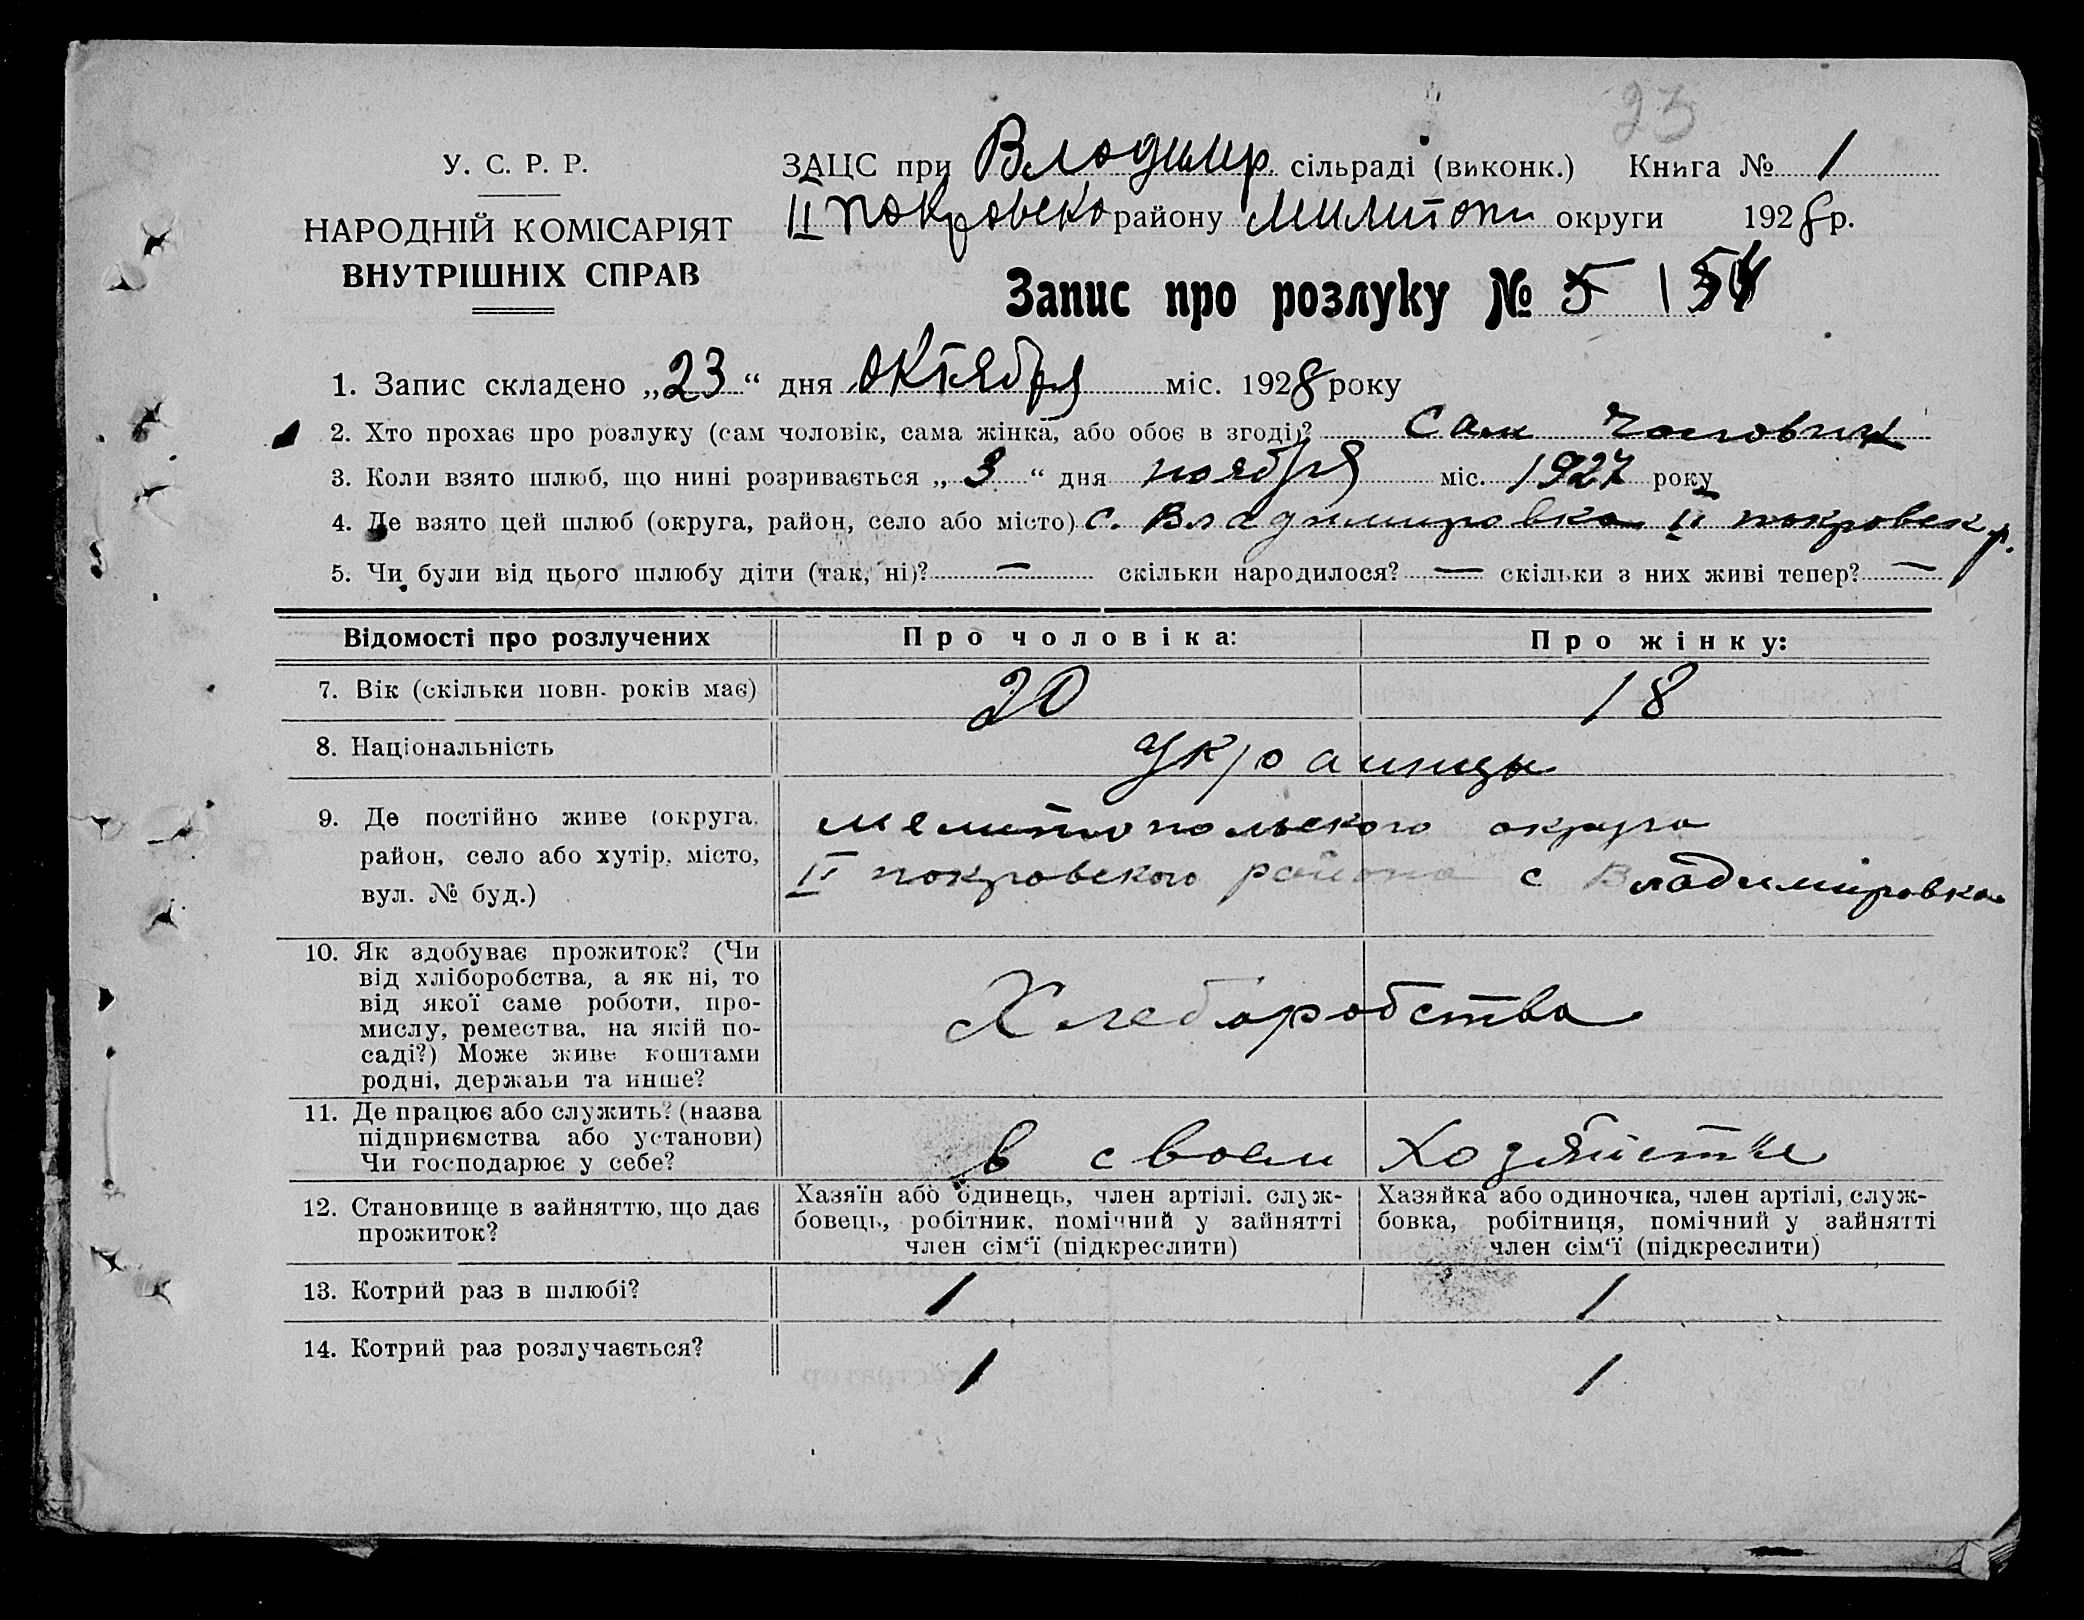 23
У. С. Р. Р.
НАРОДНІЙ КОМІСАРІЯТ
ВНУТРІШНІХ СПРАВ
ЗАЦС при Владимир. сільраді (виконк.) Книга № 1
II покровско району Милитоп округи 1928 р.
Запис про розлуку № 5
1. Запис складено „23“ дня Октября міс. 1928 року
2. Хто прохає про розлуку (сам чоловік, сама жінка, або обоє в згоді)? Сам Чоловик
3. Коли взято шлюб, що нині розривається „3“ дня ноября міс. 1927 року
4. Де взято цей шлюб (округа, район, село або місто) с. Владимировка II покровск р.
5. Чи були від цього шлюбу діти (так, ні)? — скільки народилося? — скільки з них живі тепер? —
Відомості про розлучених Про чоловіка: Про жінку:
7. Вік (скільки повн. років має) 20 18
8. Національність Украинцы
9. Де постійно живе (округа, район, село або хутір, місто, вул. № буд.)
мелитопольского округа
II покровского района с Владимировка
10. Як здобуває прожиток? (Чи
від хліборобства, а як ні, то
від якої саме роботи, про-
мислу, ремества, на якій по-
саді?) Може живе коштами
родні, держави та инше?
Хлеборобства
11. Де працює або служить? (назва
підприємства або установи)
Чи господарює у себе?
в своем Хозяйстве
12. Становище в зайняттю, що дає
прожиток?
Хазяїн або одинець, член артілі, служ-
бовець, робітник, помічний у зайнятті
член сім‘ї (підкреслити)
Хазяйка або одиночка, член артілі, служ-
бовка, робітниця, помічний у зайнятті
член сім‘ї (підкреслити)
13. Котрий раз в шлюбі? 1 1
14. Котрий раз розлучається? 1 1